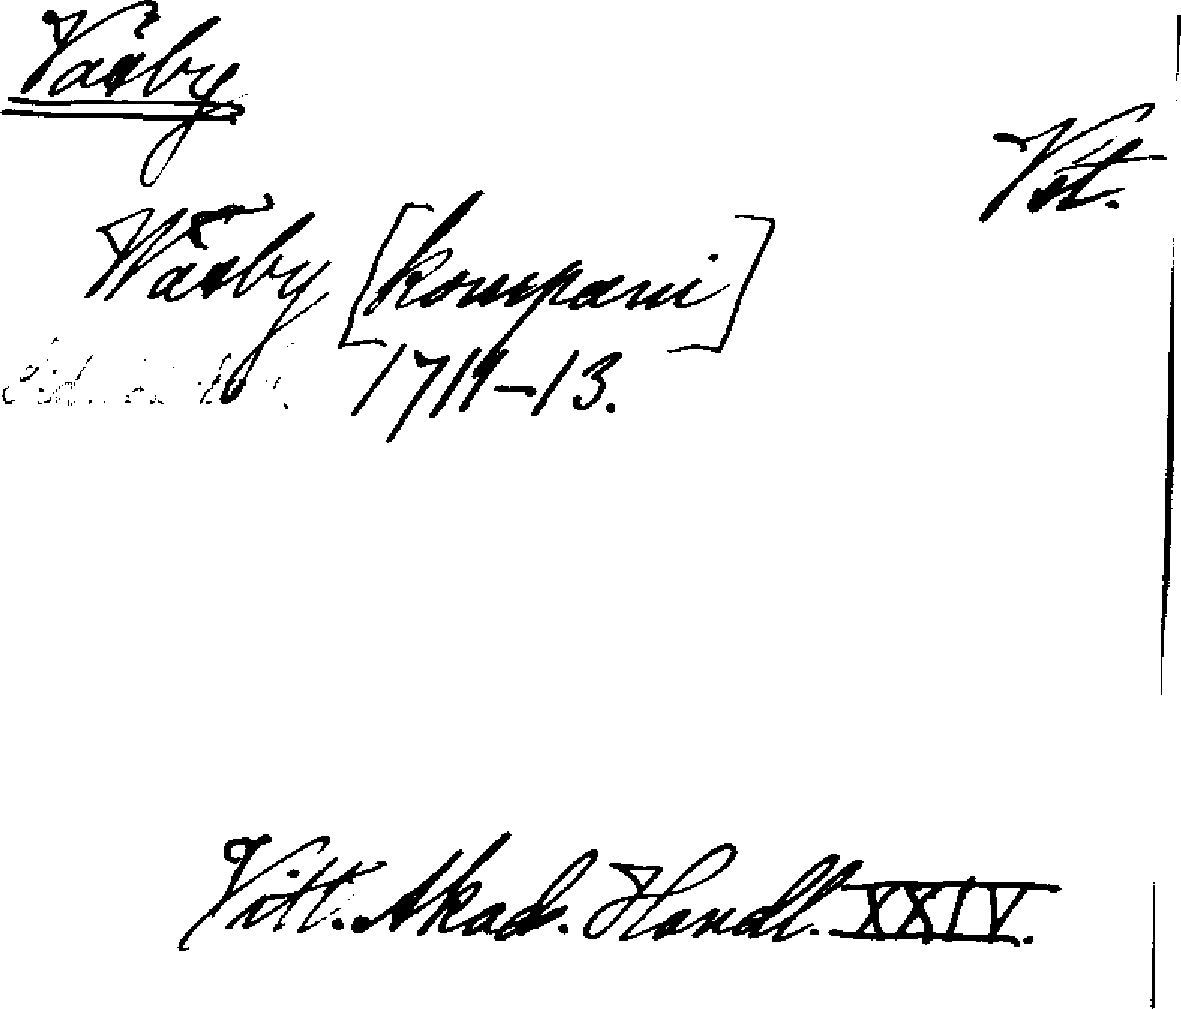 Väsby
Vst.
Wäsby [kompani]
1711-13.
Vitt. Akad. Handl. XXIV.